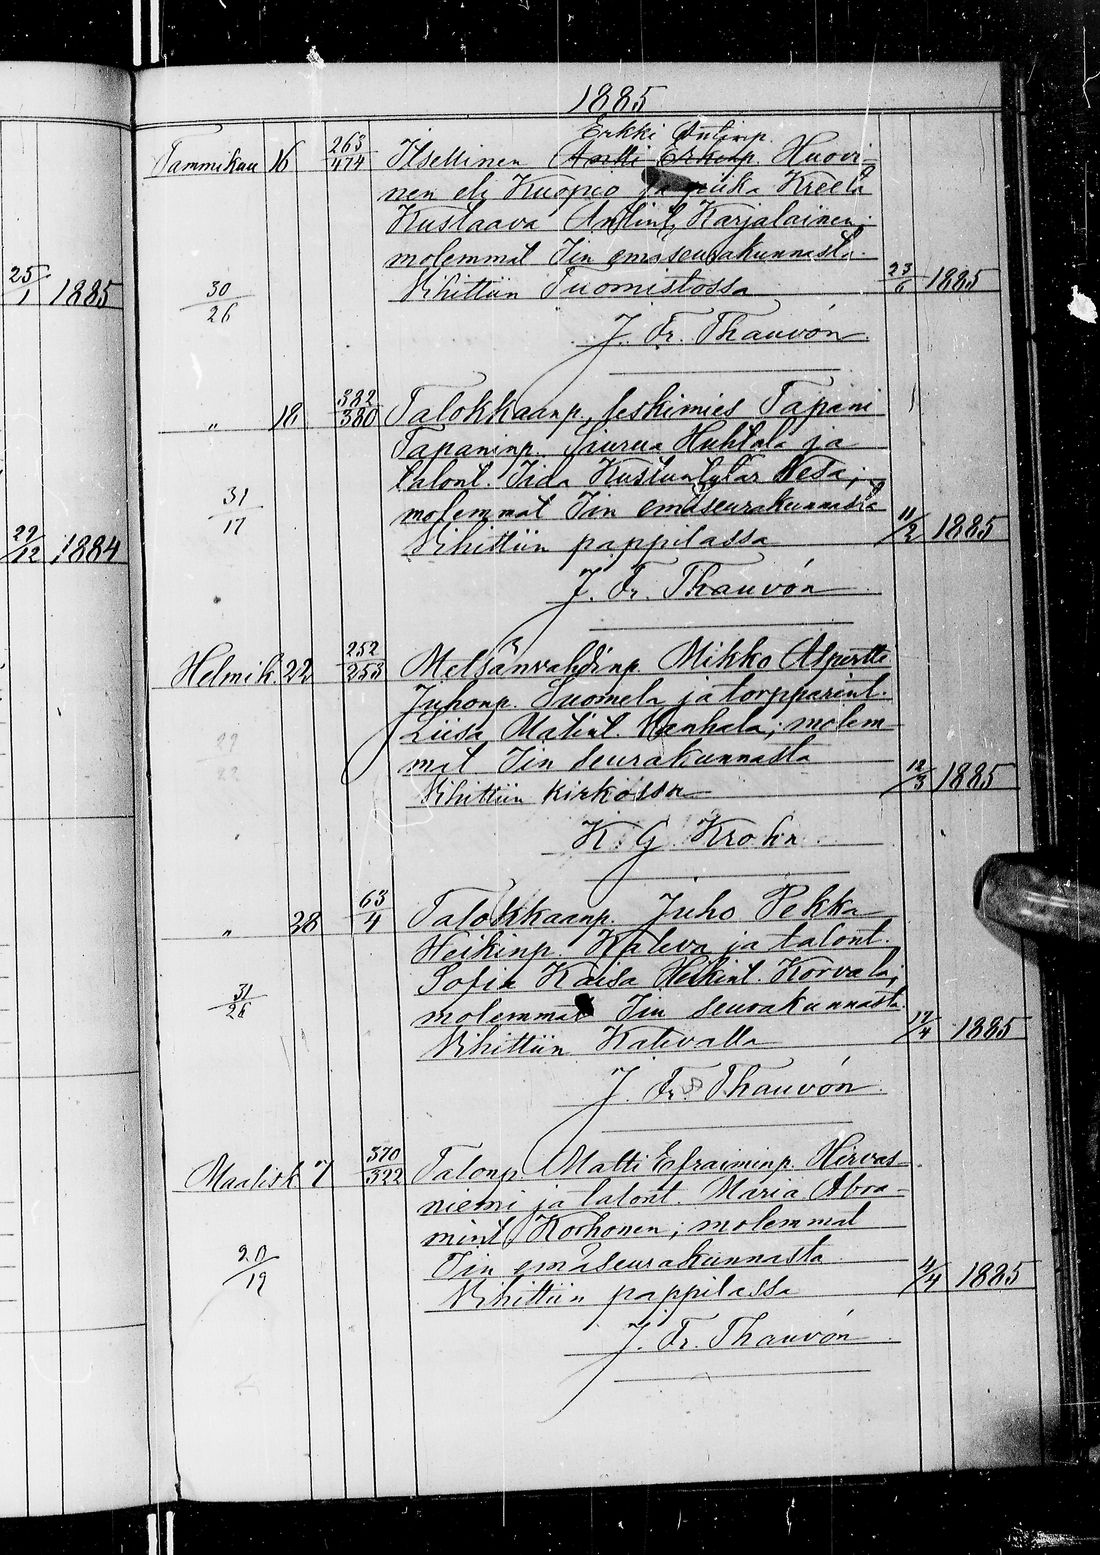 1885
Erkki Antinp.
Tammikuu 16 263/474 Itsellinen Antti Erkinp. Huovi-
nen eli Kuopio ja piika Kreeta
Kustaava Antint. Karjalainen;
molemmat Iin emäseurakunnasta.
25/1 1885 30/26 Vihittiin Tuomistossa 23/6 1885
J. Fr. Thauvón
" 18 382/380 Talokkaanp. leskimies Tapani
Tapaninp. Siurua Huhtala ja
talont. Iida Kustuntytär Vesa;
31/17 molemmat Iin emäseurakunnasta
12 1884 Vihittiin pappilassa 11/2 1885
J. Fr. Thauvón
Helmik. 22 252/253 Metsänvahdinp. Mikko Alpertti
Juhonp. Suomela ja torpparint.
Liisa Matint. Hanhala; molem-
29/22 mat Iin seurakunnasta
Vihittiin kirkossa 12/3 1885
K. G. Krohn
" 28 63/4 Talokkaanp. Juho Pekka
Heikinp. Kaleva ja talont.
Sofia Kaisa Heikint. Korvala;
31/26 molemmat Iin seurakunnasta
Vihittiin Kalevalla 17/4 1885
J. Fr. Thauvón
Maalisk. 7 370/322 Talonp. Matti Efraiminp. Hirvas-
niemi ja talont. Maria Abra-
mint. Korhonen; molemmat
20/19 Iin emäseurakunnasta
Vihittiin pappilassa 4/4 1885
J. Fr. Thauvón